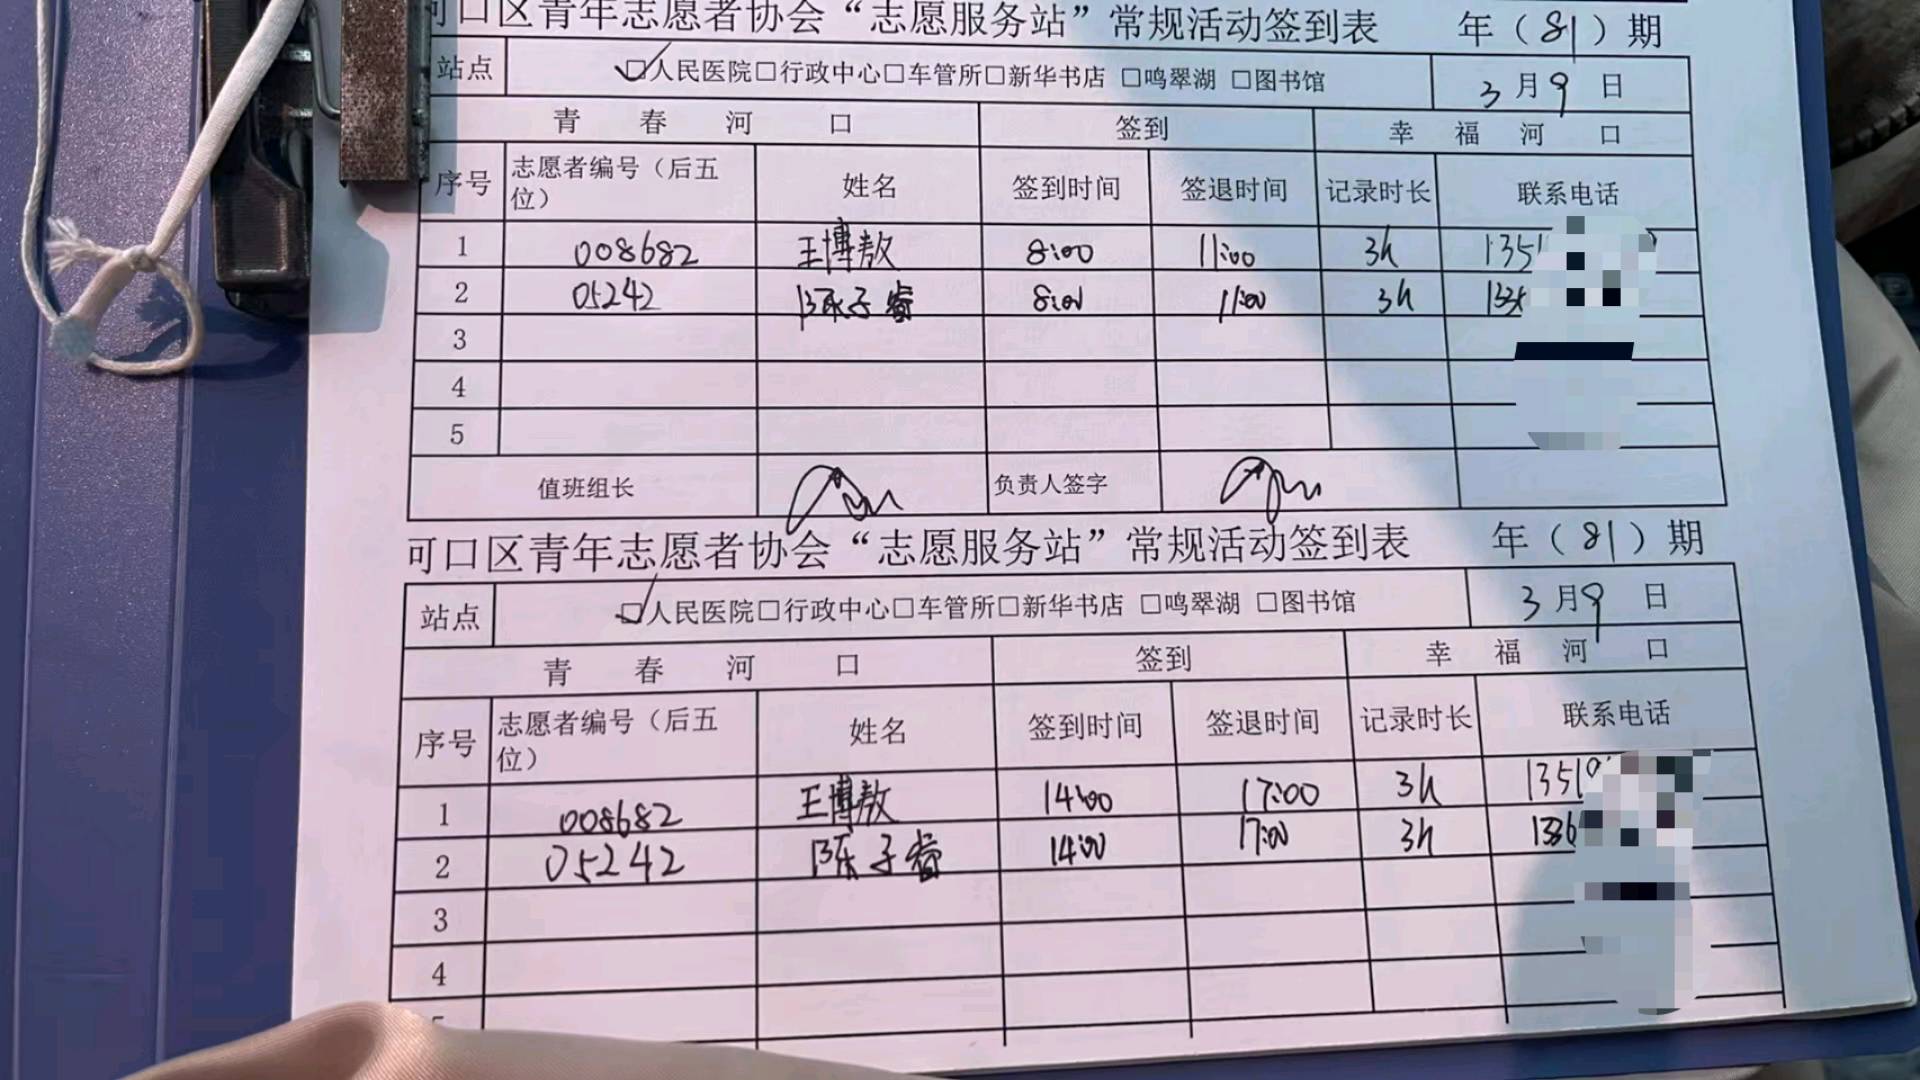 河口区青年志愿者协会“志愿服务站”常规活动签到表 年（81）期
站点 ☑人民医院□行政中心□车管所□新华书店 □鸣翠湖 □图书馆 3月9日
青春河口 签到 幸福河口
序号 志愿者编号（后五位） 姓名 签到时间 签退时间 记录时长 联系电话
1 008682 王博敖 8:00 11:00 3h 1351
2 05242 陈子睿 8:00 11:00 3h
3
4
5
值班组长 负责人签字
可口区青年志愿者协会“志愿服务站”常规活动签到表 年（81）期
站点 ☑人民医院□行政中心□车管所□新华书店 □鸣翠湖 □图书馆 3月9日
青春河口 签到 幸福河口
序号 志愿者编号（后五位） 姓名 签到时间 签退时间 记录时长 联系电话
1 008682 王博敖 14:00 17:00 3h 1351
2 05242 陈子睿 14:00 17:00 3h 136
3
4